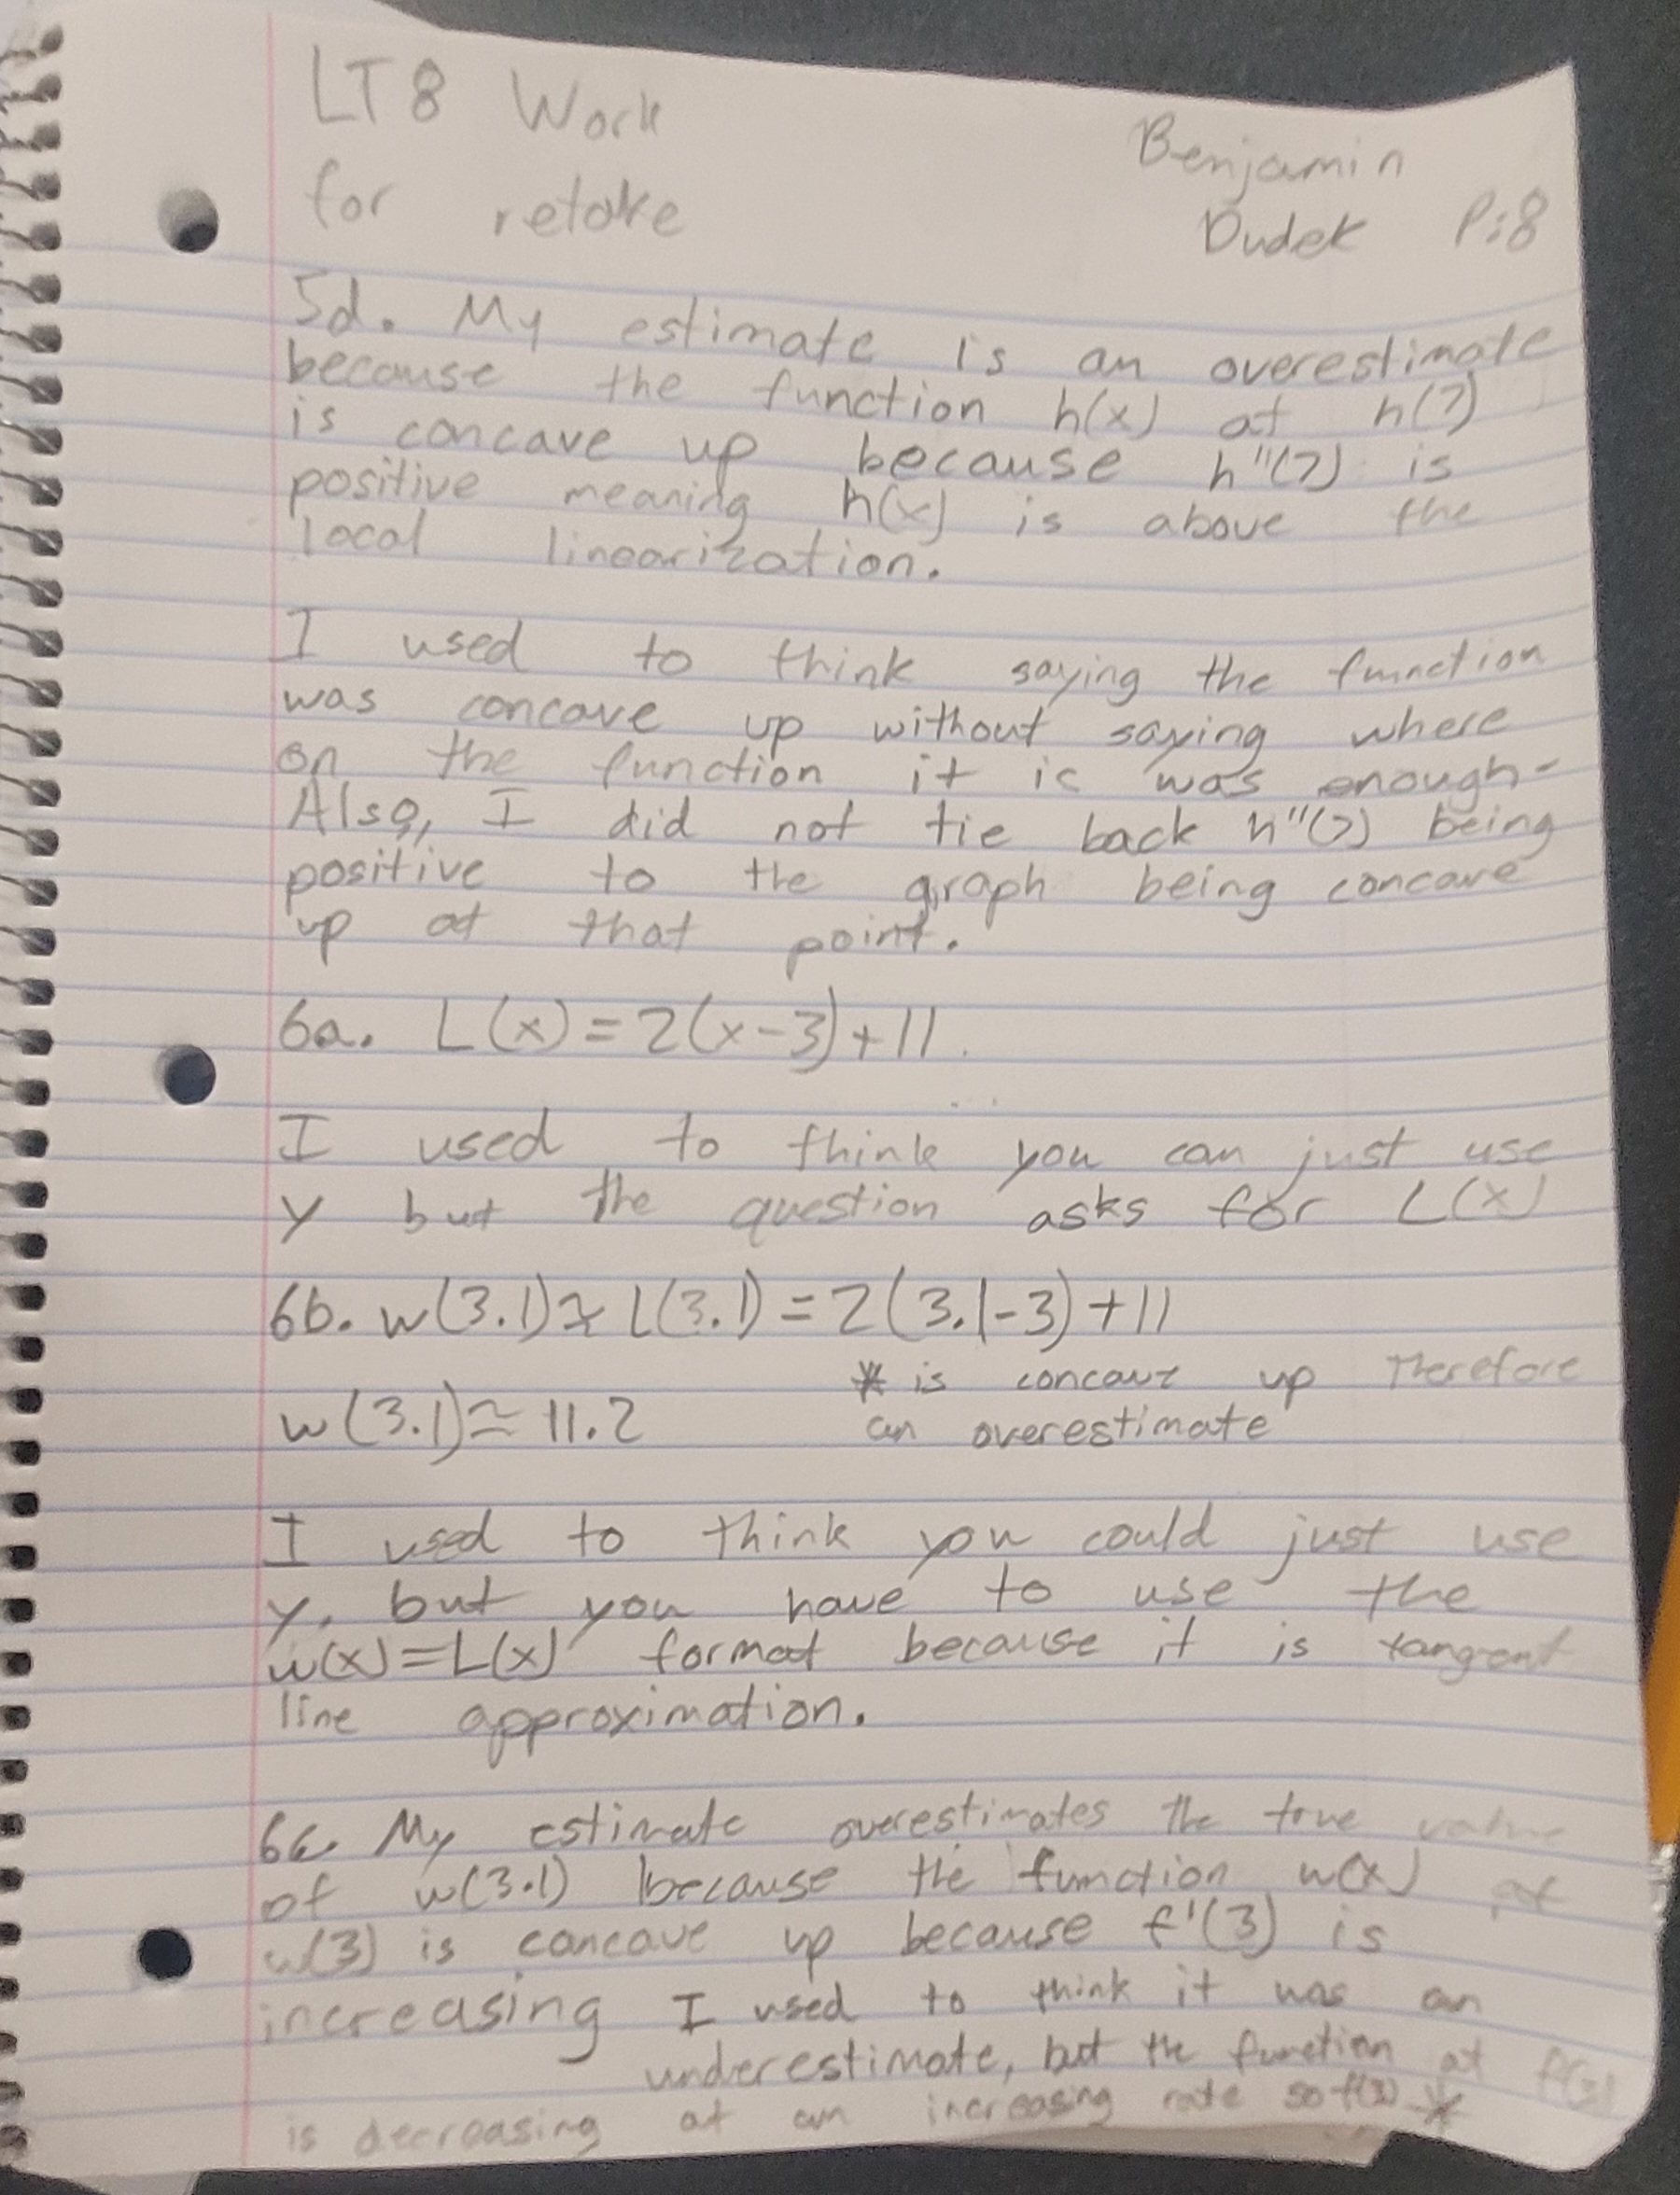 LT8 Work
for retake
Benjamin
Dudek P:8
5d. My estimate is an overestimate
because the function h(x) at h(7)
is concave up because h"(7) is
positive meaning h(x) is above the
local linearization.
I used to think saying the function
was concave up without saying where
on the function it is was enough.
Also, I did not tie back h"(7) being
positive to the graph being concave
up at that point.
6a. L(x)=2(x-3)+11
I used to think you can just use
y but the question asks for L(x)
6b. w(3.1)≈L(3.1)=2(3.1-3)+11
w(3.1)≈11.2
* is concave up therefore
an overestimate
I used to think you could just use
y, but you have to use the
w(x)=L(x) format because it is tangent
line approximation.
6c. My estimate overestimates the true value
of w(3.1) because the function w(x) at
w(3) is concave up because f'(3) is
increasing I used to think it was an
underestimate, but the function at f(3)
is decreasing at an increasing rate so f(3) *